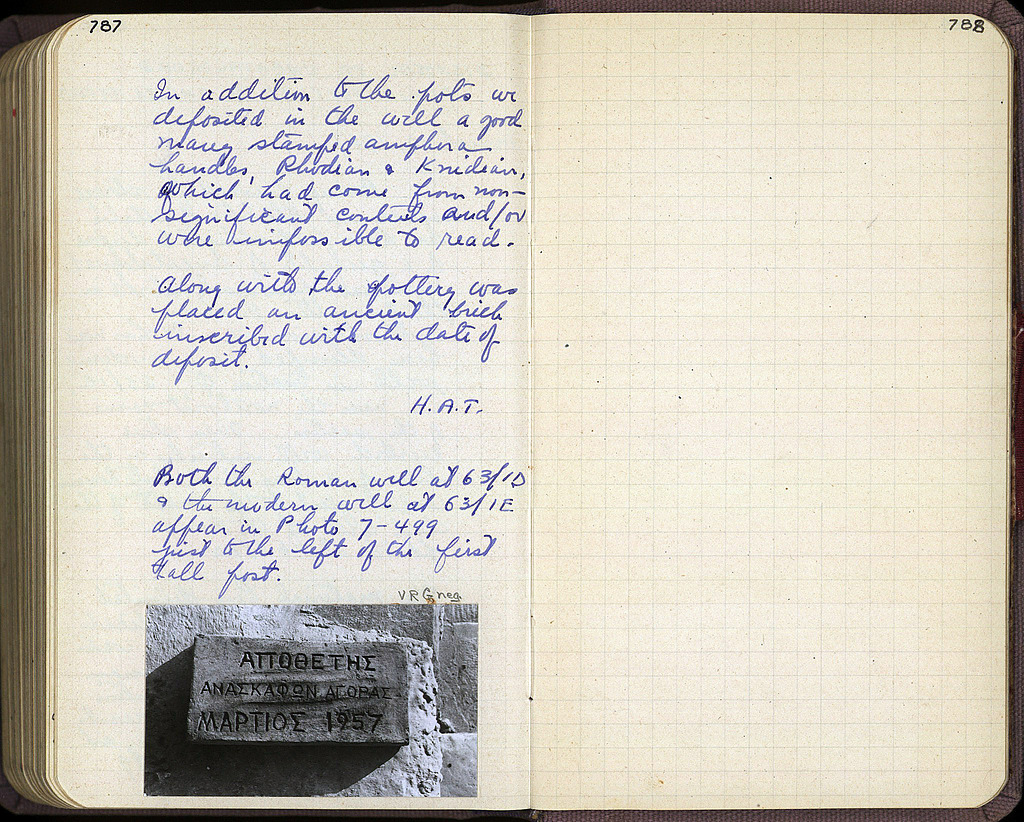 787
In addition to the pots we
deposited in the well a good
many stamped amphora
handles, Rhodian & Knidian,
which had come from non-
significant contexts and/or
were impossible to read.
Along with the pottery was
placed an ancient brick
inscribed with the date of
deposit.
H.A.T.
Both the Roman well at 63/1D
& the modern well at 63/1E
appear in Photo 7-499
just to the left of the first
tall post.
VRG neg.
ΑΠΟΘΕΤΗΣ
ΑΝΑΣΚΑΦΩΝ ΑΓΟΡΑΣ
ΜΑΡΤΙΟΣ 1957
788